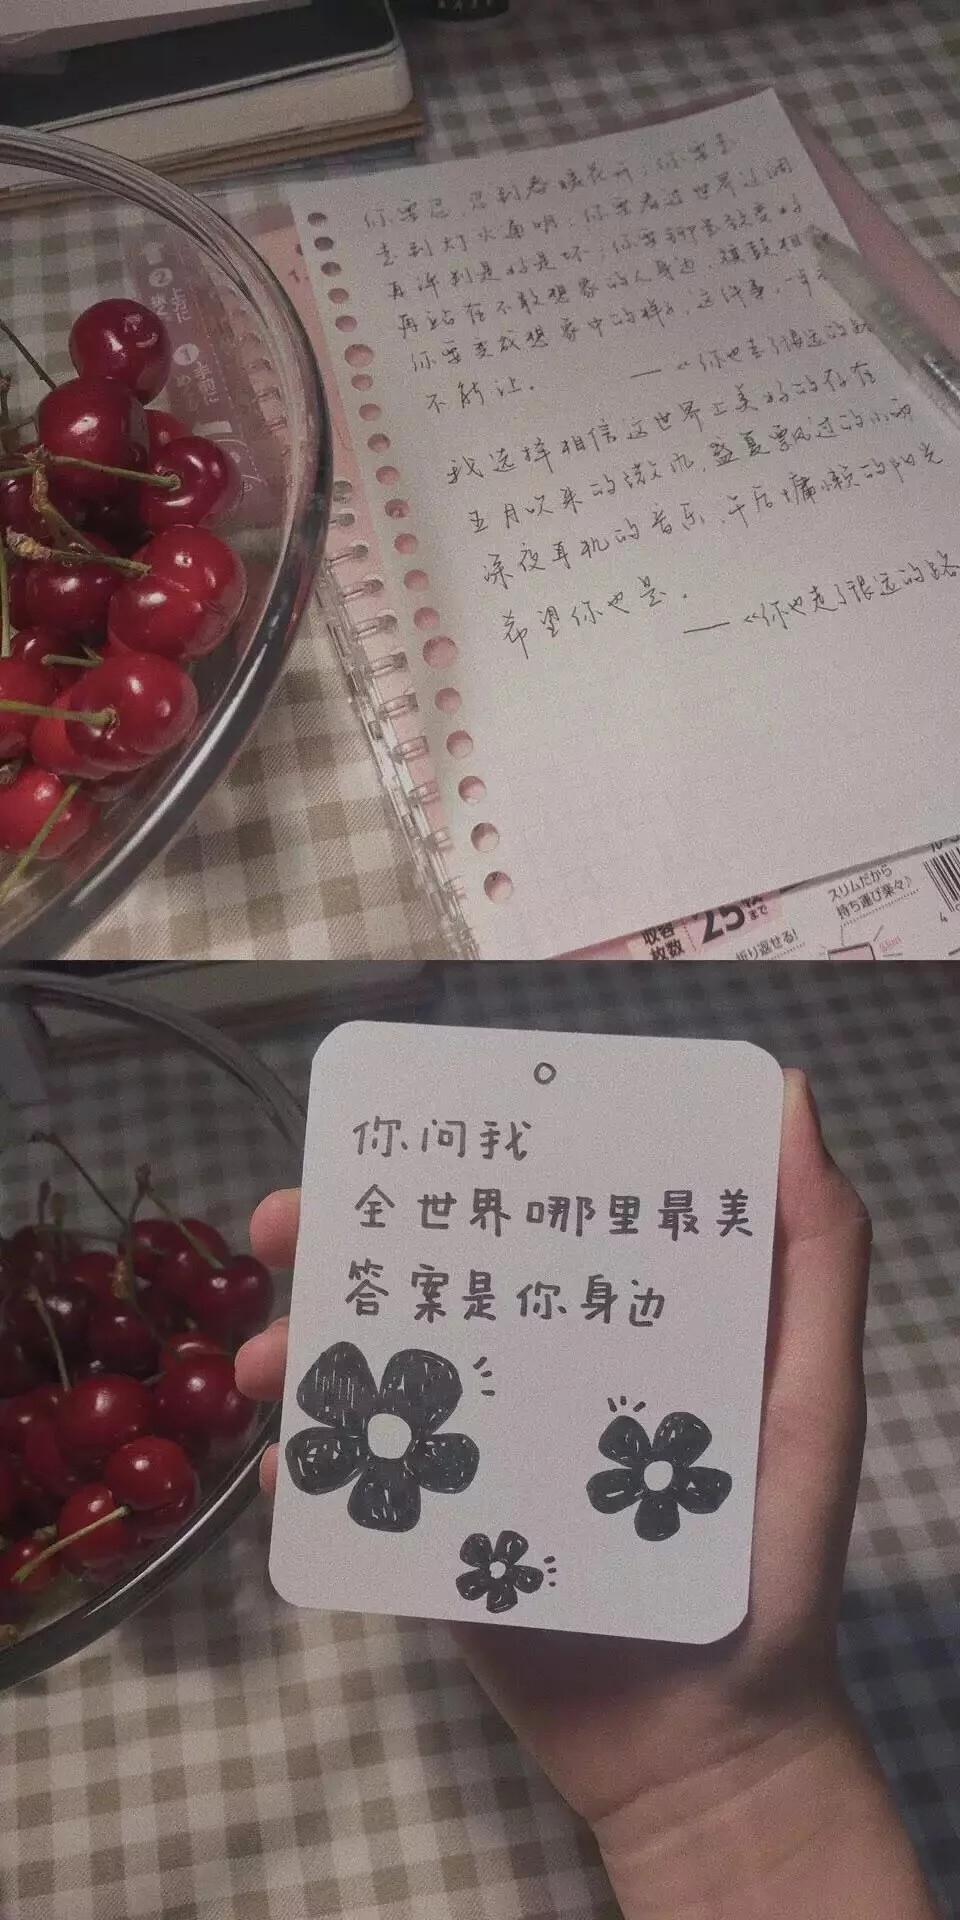 你要忍，忍到春暖花开；你要走
走到灯火通明；你要看过世界辽阔
再评判是好是坏；你要铆劲变好
再站在不敢想象的人身边，旗鼓相
你要变成想象中的样子，这件事，一步
不能让。 ——《你也走了很远的路
我选择相信这世界上美好的存在
五月吹来的微风，盛夏飘过的小雨
深夜耳机的音乐，午后慵懒的阳光
希望你也是。 ——《你也走了很远的路
収容
枚数 25 まで
折り返せる!
スリムだから
持ち運び楽々♪
你问我
全世界哪里最美
答案是你身边